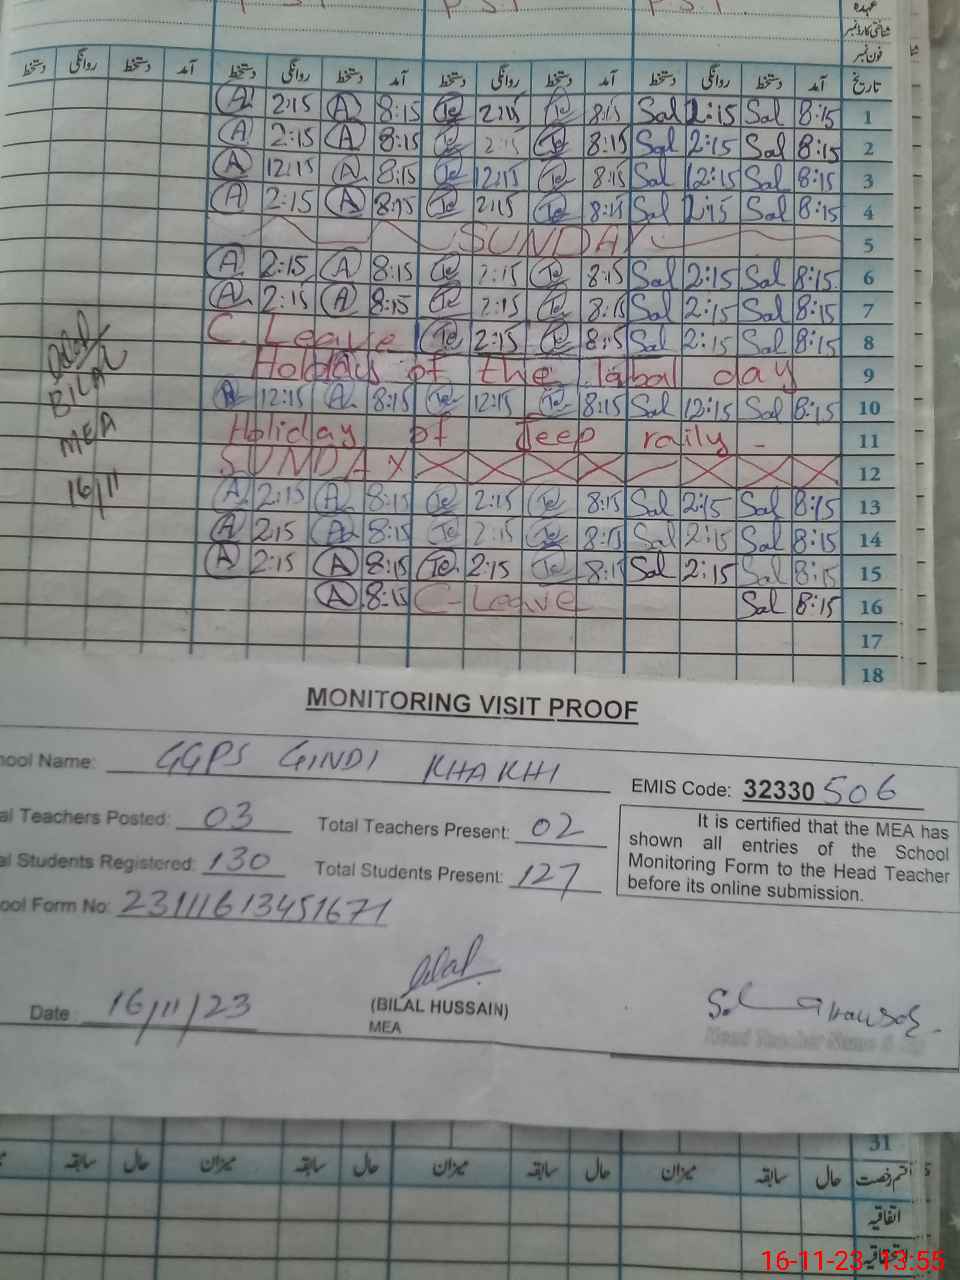 P.S.T P.S.T P.S.T
عہدہ
شناختی کارڈ نمبر
فون نمبر
تاریخ آمد دستخط روانگی دستخط آمد دستخط روانگی دستخط آمد دستخط روانگی دستخط آمد دستخط روانگی دستخط
A 2:15 A 8:15 Te 2:15 Te 8:15 Sal 2:15 Sal 8:15 1
A 2:15 A 8:15 Te 2:15 Te 8:15 Sal 2:15 Sal 8:15 2
A 12:15 A 8:15 Te 12:15 Te 8:15 Sal 12:15 Sal 8:15 3
A 2:15 A 8:15 Te 2:15 Te 8:15 Sal 2:15 Sal 8:15 4
SUNDAY 5
A 2:15 A 8:15 Te 2:15 Te 8:15 Sal 2:15 Sal 8:15 6
A 2:15 A 8:15 Te 2:15 Te 8:15 Sal 2:15 Sal 8:15 7
C. Leave Te 2:15 Te 8:15 Sal 2:15 Sal 8:15 8
Holiday of the Iqbal day 9
A 12:15 A 8:15 Te 12:15 Te 8:15 Sal 12:15 Sal 8:15 10
Holiday of Jeep raily - 11
SUNDAY 12
A 2:15 A 8:15 Te 2:15 Te 8:15 Sal 2:15 Sal 8:15 13
A 2:15 A 8:15 Te 2:15 Te 8:15 Sal 2:15 Sal 8:15 14
A 2:15 A 8:15 Te 2:15 Te 8:15 Sal 2:15 Sal 8:15 15
A 8:15 C-Leave Sal 8:15 16
17
18
Bilal
BILAL
MEA
16/11
MONITORING VISIT PROOF
hool Name: GGPS GINDI KHAKHI
EMIS Code: 32330 506
al Teachers Posted: 03 Total Teachers Present: 02
al Students Registered: 130 Total Students Present: 127
ool Form No: 23111613451671
It is certified that the MEA has
shown all entries of the School
Monitoring Form to the Head Teacher
before its online submission.
Date : 16/11/23
Bilal
(BILAL HUSSAIN)
MEA
31
قسم رخصت حال سابقہ میزان حال سابقہ میزان حال سابقہ میزان حال سابقہ
اتفاقیہ
استحقاقیہ
16-11-23 13:55